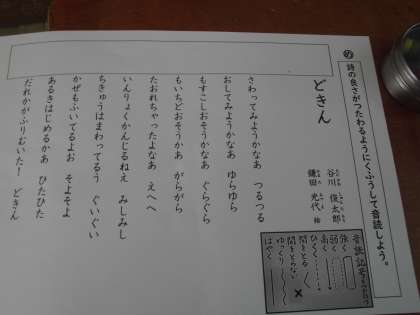 め
詩の良さがつたわるようにくふうして音読しよう。
どきん
谷川 俊太郎
鎌田 光代 絵
さわってみようかなあ つるつる
おしてみようかなあ ゆらゆら
もすこしおそうかなあ ぐらぐら
もいちどおそうかあ がらがら
たおれちゃったよなあ えへへ
いんりょくかんじるねえ みしみし
ちきゅうはまわってるう ぐいぐい
かぜもふいてるよお そよそよ
あるきはじめるかあ ひたひた
だれかがふりむいた! どきん
音読記号
強く
弱く
高く
ひくく
間をとる
間をとらない ×
ゆっくり
はやく